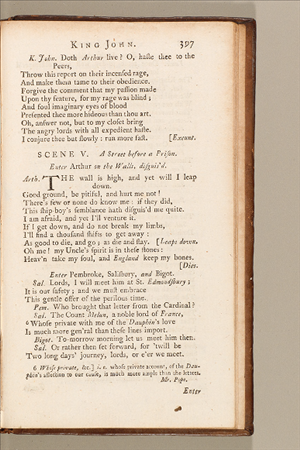 KING JOHN. 397
K. John. Doth Arthur live? O, haſte thee to the
Peers,
Throw this report on their incenſed rage,
And make them tame to their obedience.
Forgive the comment that my paſſion made
Upon thy feature, for my rage was blind;
And foul imaginary eyes of blood
Preſented thee more hideous than thou art.
Oh, anſwer not, but to my cloſet bring
The angry lords with all expedient haſte.
I conjure thee but ſlowly: run more faſt. [Exeunt.
SCENE V. A Street before a Priſon.
Enter Arthur on the Walls, diſguis'd.
Arth. THE wall is high, and yet will I leap
down.
Good ground, be pitiful, and hurt me not!
There's few or none do know me: if they did,
This ſhip-boy's ſemblance hath diſguis'd me quite.
I am afraid, and yet I'll venture it.
If I get down, and do not break my limbs,
I'll find a thouſand ſhifts to get away:
As good to die, and go; as die and ſtay. [Leaps down.
Oh me! my Uncle's ſpirit is in theſe ſtones:
Heav'n take my ſoul, and England keep my bones.
[Dies.
Enter Pembroke, Salisbury, and Bigot.
Sal. Lords, I will meet him at St. Edmondſbury;
It is our ſafety; and we muſt embrace
This gentle offer of the perilous time.
Pem. Who brought that letter from the Cardinal?
Sal. The Count Melun, a noble lord of France,
6 Whoſe private with me of the Dauphin's love
Is much more gen'ral than theſe lines import.
Bigot. To-morrow morning let us meet him then.
Sal. Or rather then ſet forward, for 'twill be
Two long days' journey, lords, or e'er we meet.
6 Whoſe private, &c.] i. e. whoſe private account, of the Dau-
phin's affection to our cauſe, is much more ample than the letters.
Mr. Pope.
Enter